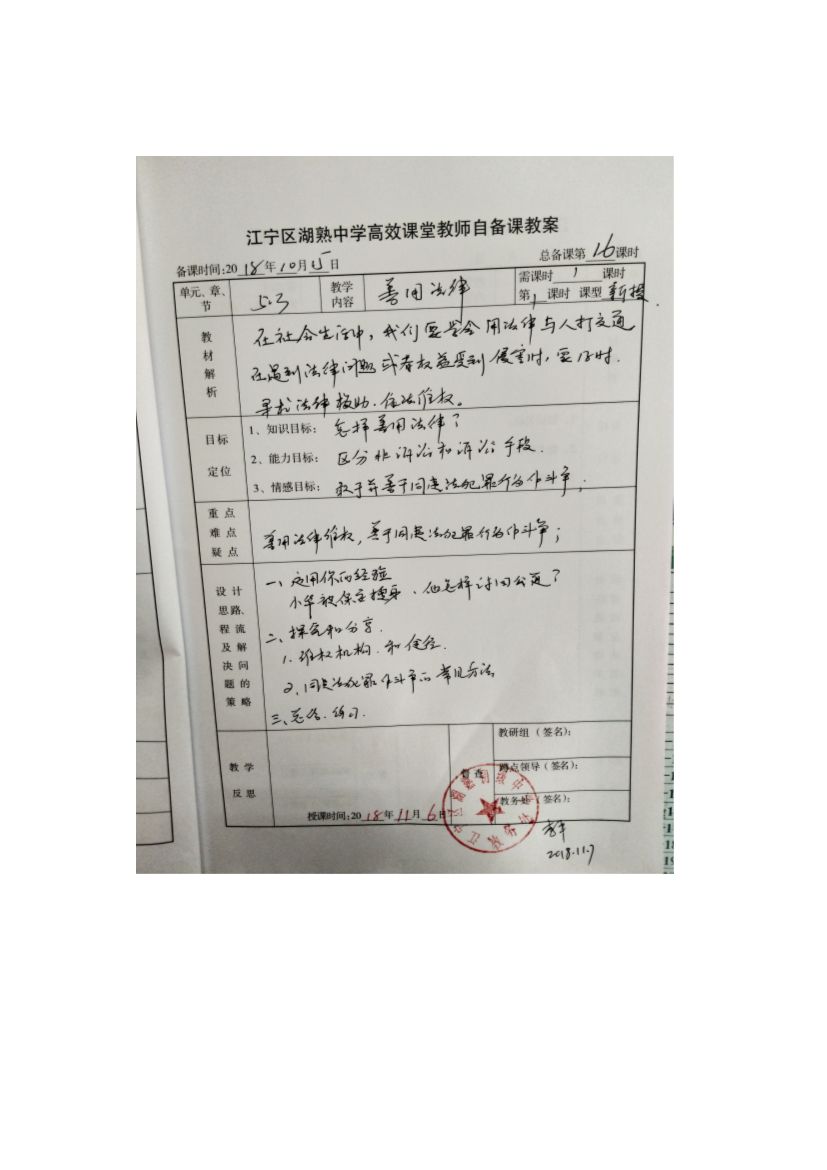 江宁区湖熟中学高效课堂教师自备课教案
备课时间:2018年10月15日
总备课第16课时
单元、章、节
5.3
教学内容
善用法律
需课时 1 课时
第1课时 课型 新授
教材解析
在社会生活中，我们要学会用法律与人打交道
在遇到法律问题或者权益受到侵害时，要及时
寻求法律救助，依法维权。
目标定位
1、知识目标： 怎样善用法律？
2、能力目标： 区分非诉讼和诉讼手段.
3、情感目标： 敢于并善于同违法犯罪行为作斗争；
重点
难点
疑点
善用法律维权，善于同违法犯罪行为作斗争；
设计
思路、
程流
及解
决问
题的
策略
一、运用你的经验
小华被保安搜身，他怎样讨回公道？
二、探究和分享.
1. 维权机构.和途径.
2、同违法犯罪作斗争的常见方法
三、总结.练习.
教学
反思
授课时间:2018年11月6日
督查
教研组（签名):
蹲点领导（签名):
教务处（签名):
2018.11.7